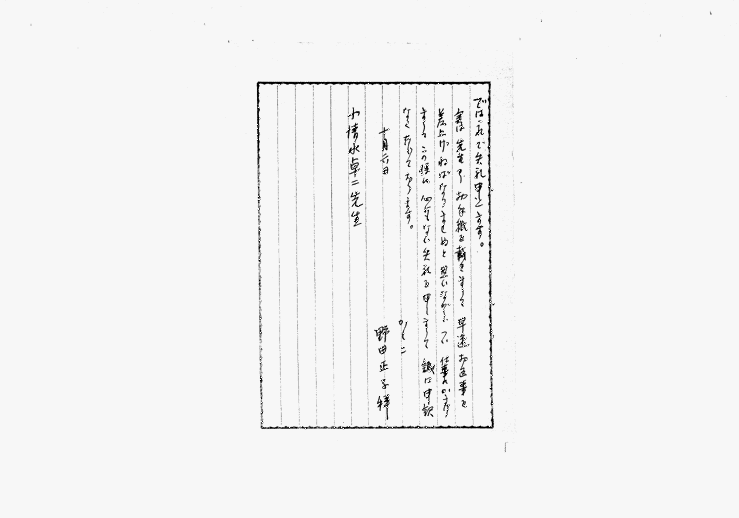 では之で失礼申します。
実は先生よりお手紙を戴きまして早速お返事を
差上げねばならませぬと思いながら、つい仕事にかまけ
ましてこの様に心ない失礼を申しまして誠に申訳
なく存じております。
かしこ
十月六日
野田正子拝
小清水卓二先生